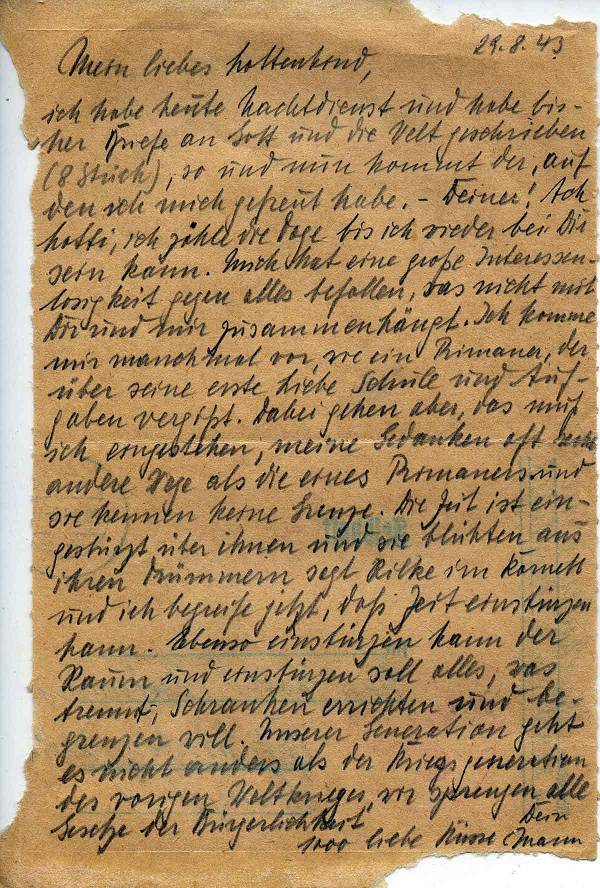 29.8.43
Mein liebes Lottenkind,
ich habe heute Nachtdienst und habe bis-
her Briefe an Gott und die Welt geschrieben
(8 Stück), so und nun kommt der, auf
den ich mich gefreut habe. - Deiner! Ach
Lotti, ich zähle die Tage bis ich wieder bei Dir
sein kann. Mich hat eine große Interessen-
losigkeit gegen alles befallen, was nicht mit
Dir und mir zusammenhängt. Ich komme
mir manchmal vor, wie ein Primaner, der
über seine erste Liebe Schule und Auf-
gaben vergißt. Dabei gehen aber, das muß
ich eingestehen, meine Gedanken oft
andere Wege als die eines Primaners und
sie kennen keine Grenze. Die Zeit ist ein-
gestürzt über ihnen und sie blühten aus
ihren Trümmern sagt Rilke im Kornett
und ich begreife jetzt, daß Zeit einstürzen
kann. Ebenso einstürzen kann der
Raum und einstürzen soll alles, was
trennt, Schranken errichten und be-
grenzen will. Unserer Generation geht
es nicht anders als der Kriegsgeneration
des vorigen Weltkrieges, wir sprengen alle
Gesetze der Bürgerlichkeit
1000 liebe Küsse Dein
Mann